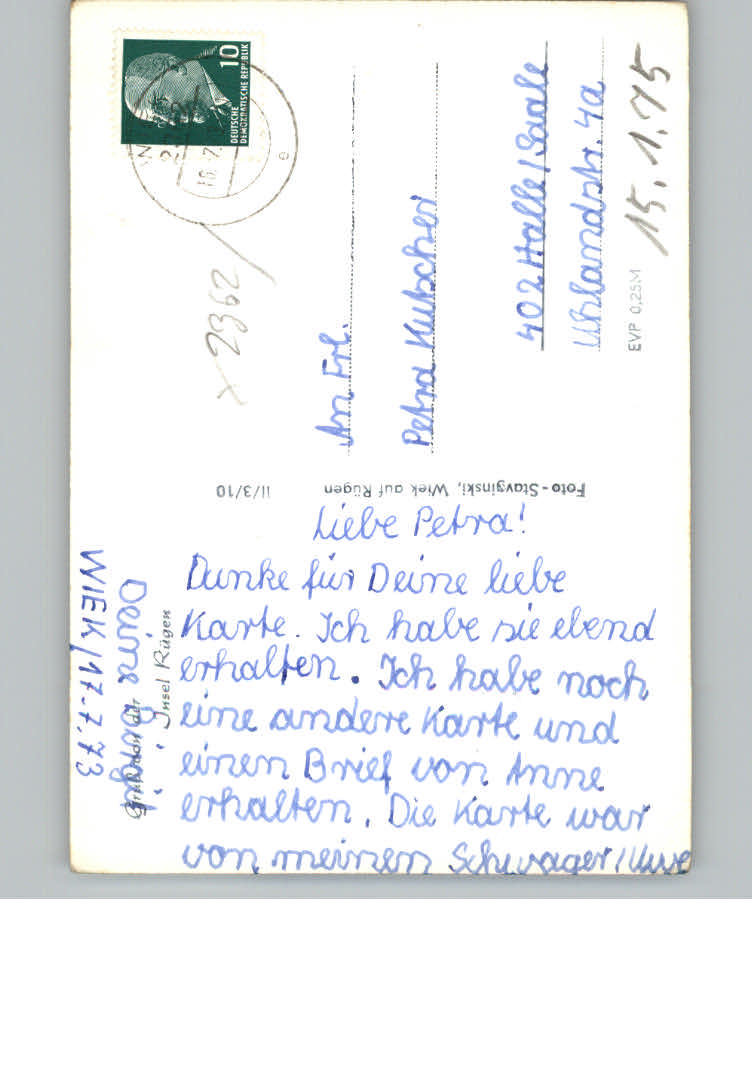 Liebe Petra!
Danke für Deine liebe
Karte. Ich habe sie ebend
erhalten. Ich habe noch
eine andere Karte und
einen Brief von Anne
erhalten. Die Karte war
von meinen Schwager/Uwe
Deine Birgit
WIEK/17.7.73
Insel Rügen
Foto-Stavginski, Wiek auf Rügen
II/3/10
An Frl.
Petra Kutscher
402 Halle/Saale
Uhlandstr. 4a
EVP 0,25M
15.1.75
x 2362/
10
DEUTSCHE
DEMOKRATISCHE REPUBLIK